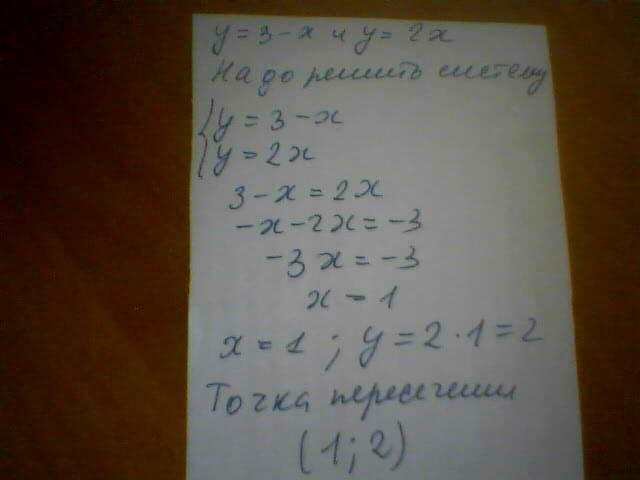 y = 3 - x и y = 2x
Надо решить систему
{ y = 3 - x
y = 2x
3 - x = 2x
-x - 2x = -3
-3x = -3
x = 1
x = 1 ; y = 2 · 1 = 2
Точка пересечения
(1; 2)